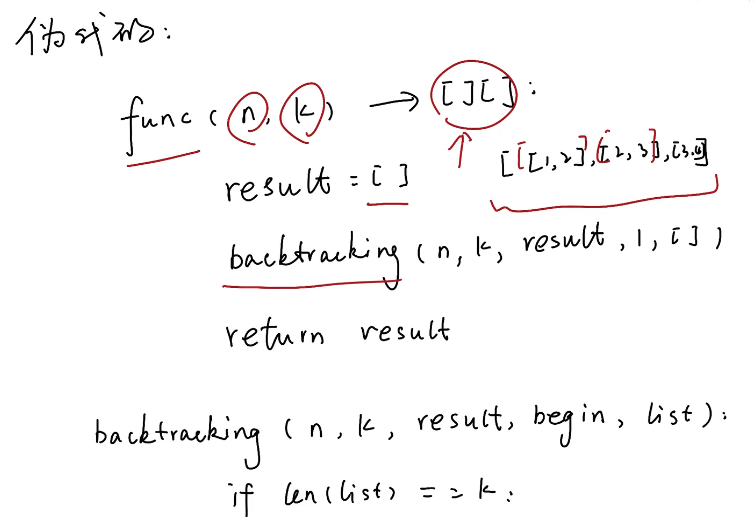 伪代码:
func(n, k) → [][]:
[[1,2],[2,3],[3,4]]
result = []
backtracking(n, k, result, 1, [])
return result
backtracking(n, k, result, begin, list):
if len(list) == k: